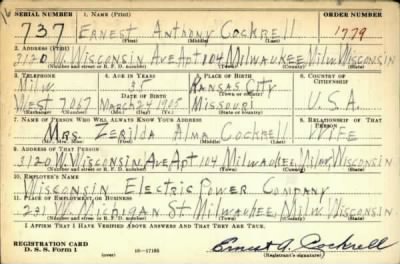 SERIAL NUMBER 1. NAME (Print) ORDER NUMBER
737 ERNEST ANTHONY COCKRELL 1779
(First) (Middle) (Last)
2. ADDRESS (Print)
3120 W. WISCONSIN AVE APT 104 MILWAUKEE MILW. WISCONSIN
(Number and street or R. F. D. number) (Town) (County) (State)
3. TELEPHONE 4. AGE IN YEARS 5. PLACE OF BIRTH 6. COUNTRY OF CITIZENSHIP
MILW. 35 KANSAS CITY
DATE OF BIRTH (Town or county)
WEST 7067 MARCH 24 1905 MISSOURI U.S.A.
(Exchange) (Number) (Mo.) (Day) (Yr.) (State or country)
7. NAME OF PERSON WHO WILL ALWAYS KNOW YOUR ADDRESS 8. RELATIONSHIP OF THAT PERSON
MRS. ZERILDA ALMA COCKRELL WIFE
(Mr., Mrs., Miss) (First) (Middle) (Last)
9. ADDRESS OF THAT PERSON
3120 W. WISCONSIN AVE APT 104 MILWAUKEE, MILW. WISCONSIN
(Number and street or R. F. D. number) (Town) (County) (State)
10. EMPLOYER'S NAME
WISCONSIN ELECTRIC POWER COMPANY
11. PLACE OF EMPLOYMENT OR BUSINESS
231 W. MICHIGAN ST. MILWAUKEE, MILW. WISCONSIN
(Number and street or R. F. D. number) (Town) (County) (State)
I AFFIRM THAT I HAVE VERIFIED ABOVE ANSWERS AND THAT THEY ARE TRUE.
REGISTRATION CARD
D. S. S. Form 1 (over) 16—17105 Ernest A. Cockrell
(Registrant's signature)